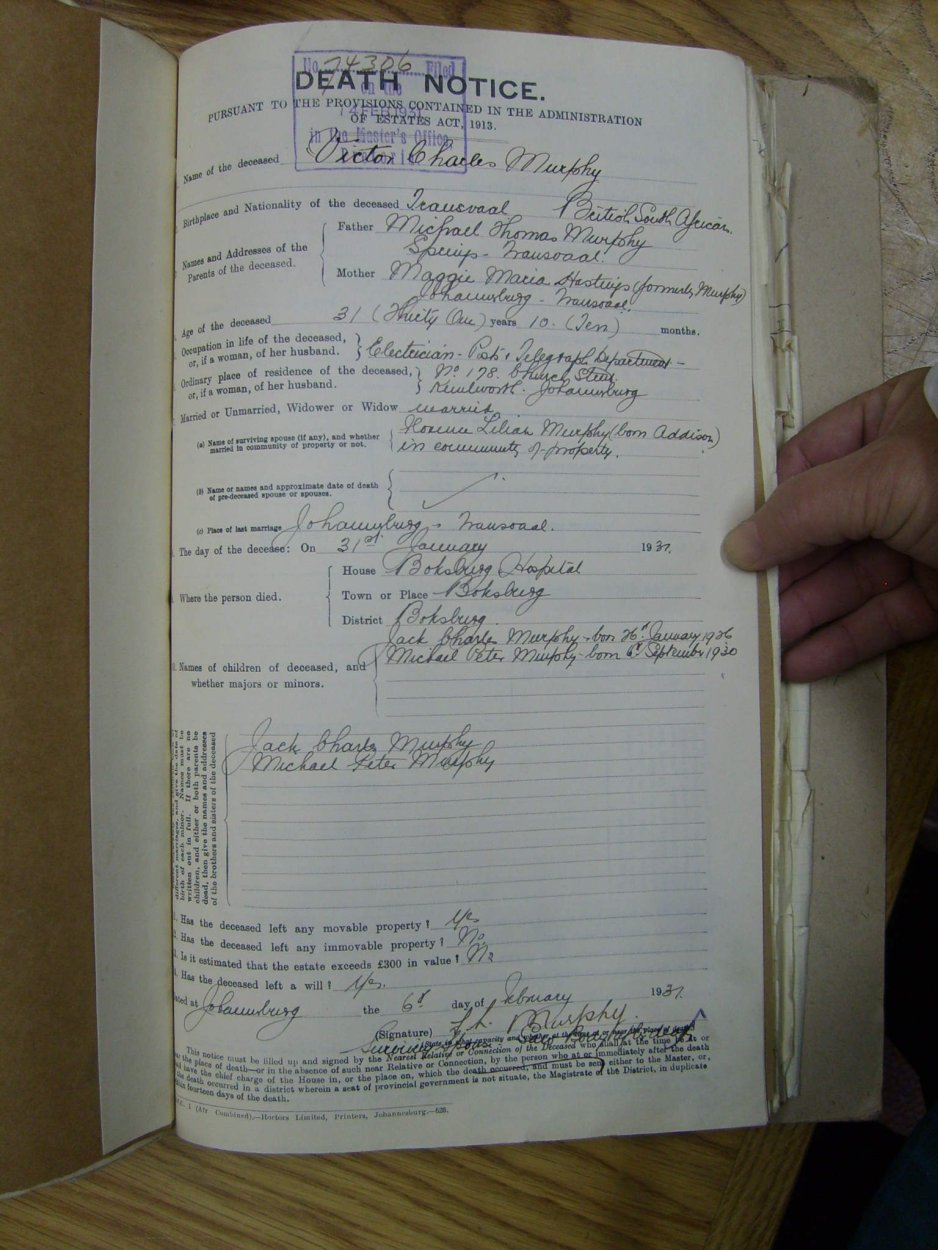 No. 74306 Filed
on the
14 FEB 1931
in the Master's Office
Pretoria
DEATH NOTICE.
PURSUANT TO THE PROVISIONS CONTAINED IN THE ADMINISTRATION
OF ESTATES ACT, 1913.
Name of the deceased Victor Charles Murphy
Birthplace and Nationality of the deceased Transvaal British South African.
Names and Addresses of the Parents of the deceased.
Father Michael Thomas Murphy
Springs - Transvaal.
Mother Maggie Maria Hastings (formerly Murphy)
Johannesburg - Transvaal.
Age of the deceased 31 (Thirty One) years 10. (Ten) months.
Occupation in life of the deceased, or, if a woman, of her husband. Electrician - Post & Telegraph Department -
Ordinary place of residence of the deceased, No. 178. Church Street
or, if a woman, of her husband. Kenilworth - Johannesburg
Married or Unmarried, Widower or Widow married
(a) Name of surviving spouse (if any), and whether Florence Lilian Murphy (born Addison)
married in community of property or not. in community of property.
(b) Name or names and approximate date of death
of pre-deceased spouse or spouses.
(c) Place of last marriage Johannesburg - Transvaal.
The day of the decease: On 31st January 1931.
Where the person died.
House Boksburg Hospital
Town or Place Boksburg
District Boksburg.
Jack Charles Murphy - born 26th January 1926
Michael Peter Murphy - born 6th September 1930
10. Names of children of deceased, and
whether majors or minors.
birth of each minor. Names must be
written out in full. If there are no
children, and either or both parents be
dead, then give the names and addresses
of the brothers and sisters of the deceased
Jack Charles Murphy
Michael Peter Murphy
Has the deceased left any movable property? Yes
Has the deceased left any immovable property? No.
Is it estimated that the estate exceeds £300 in value? No
Has the deceased left a will? Yes.
Dated at Johannesburg the 6th day of February 1931.
(Signature) F. L. Murphy.
Surviving Spouse
This notice must be filled up and signed by the Nearest Relative or Connection of the Deceased who shall at the time be at or
near the place of death—or in the absence of such near Relative or Connection, by the person who at or immediately after the death
shall have the chief charge of the House in, or the place on, which the death occurred, and must be sent either to the Master, or,
if the death occurred in a district wherein a seat of provincial government is not situate, the Magistrate of the District, in duplicate
within fourteen days of the death.
(Afr Combined).—Hortors Limited, Printers, Johannesburg.—628.